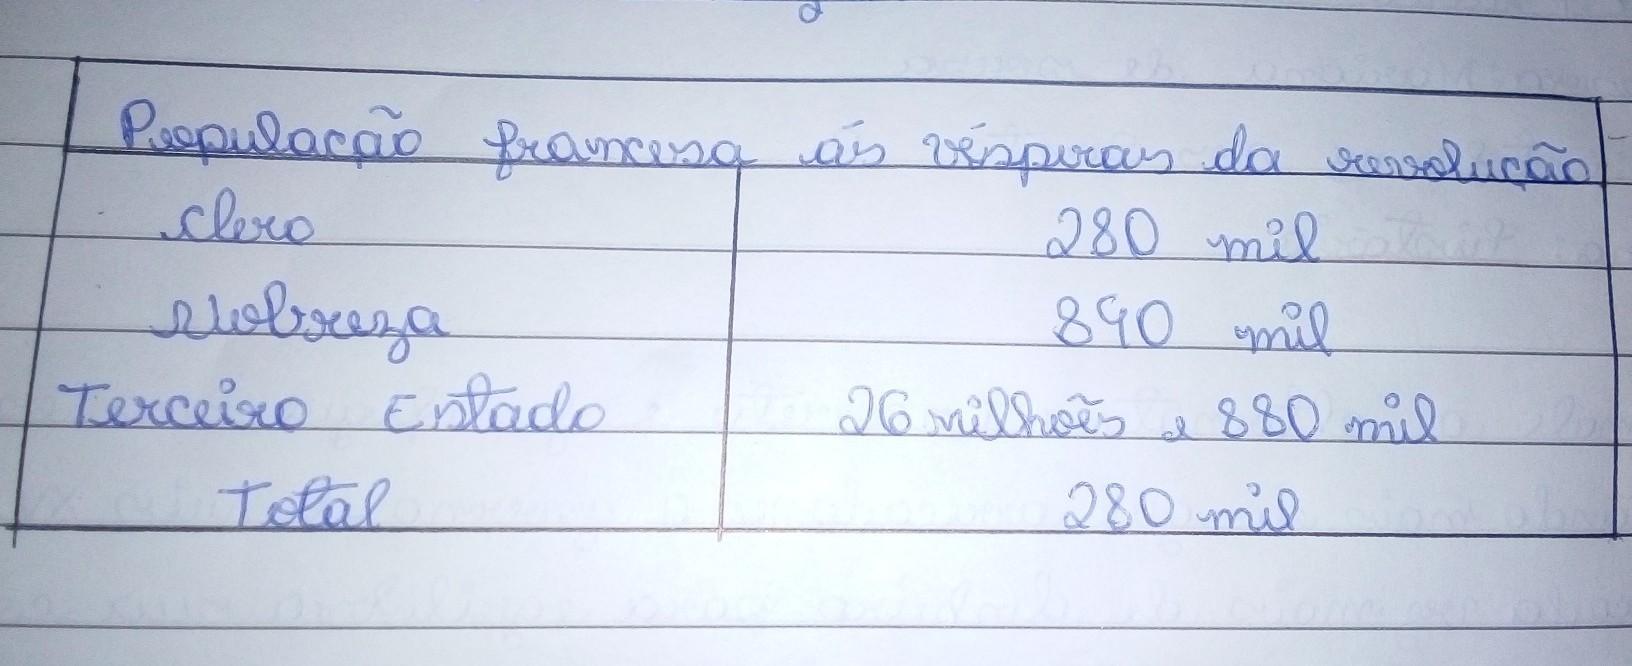 População francesa ás vésperas da revolução
Clero 280 mil
Nobreza 890 mil
Terceiro Estado 26 milhões e 880 mil
Total 280 mil